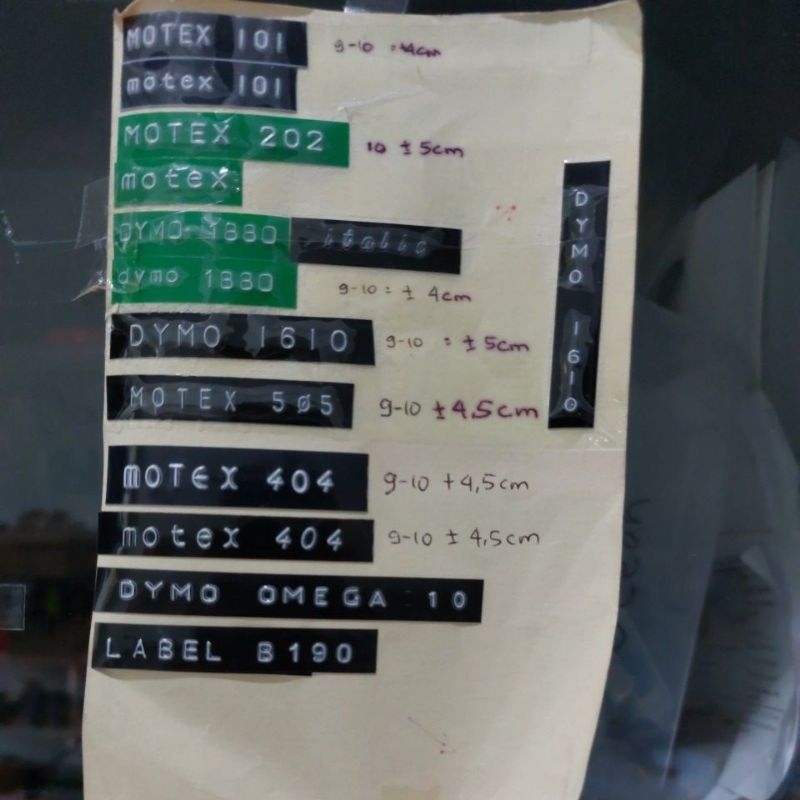 MOTEX 101 9-10 ±4cm
motex 101
MOTEX 202 10 ±5cm
motex
DYMO 1880 italic
dymo 1880
9-10 = ± 4cm
DYMO 1610 9-10 = ±5cm
MOTEX 5ø5 9-10 ±4,5cm
mOTEX 404 9-10 +4,5cm
motex 404 9-10 ± 4,5cm
DYMO OMEGA 10
LABEL B190
DYMO 1610